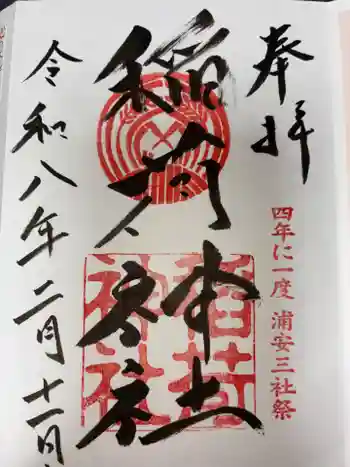 奉拝
四年に一度 浦安三社祭
稲荷
稲荷
神社
令和八年二月十一日